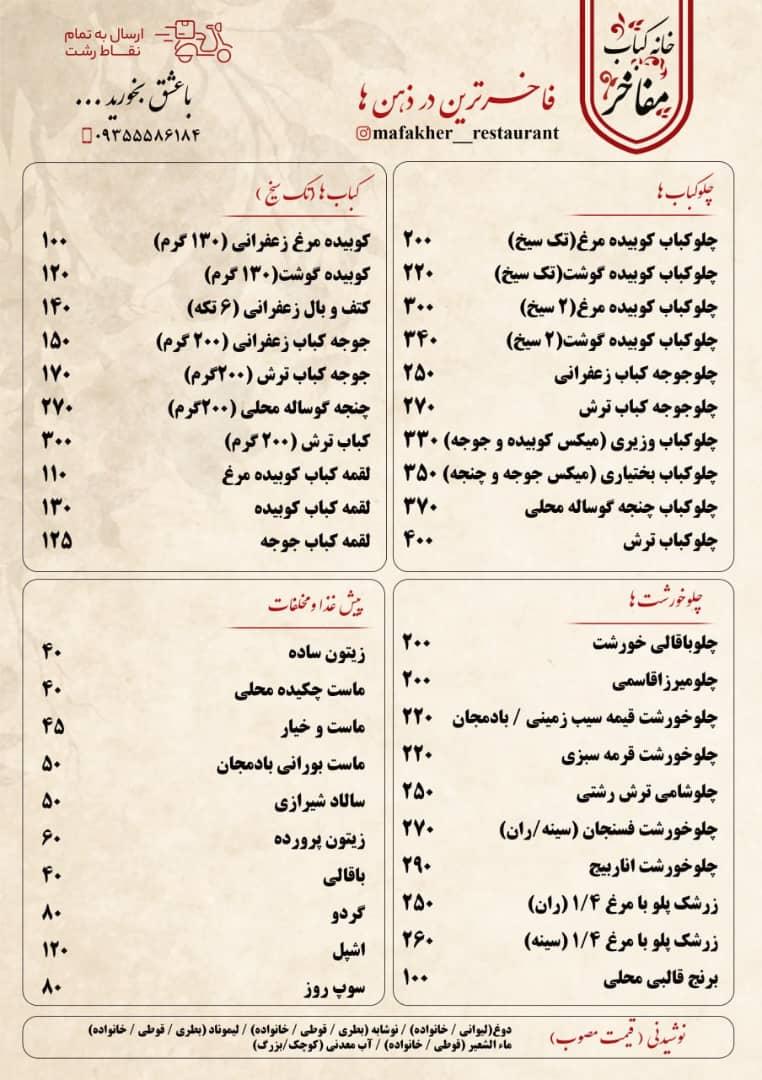 خانه کباب
مفاخر
فاخرترین در ذهن ها
mafakher__restaurant
ارسال به تمام
نقاط رشت
با عشق بخورید ...
۰۹۳۵۵۵۸۶۱۸۴
چلوکباب ها
چلوکباب کوبیده مرغ(تک سیخ) ۲۰۰
چلوکباب کوبیده گوشت(تک سیخ) ۲۲۰
چلوکباب کوبیده مرغ(۲ سیخ) ۳۰۰
چلوکباب کوبیده گوشت(۲ سیخ) ۳۴۰
چلوجوجه کباب زعفرانی ۲۵۰
چلوجوجه کباب ترش ۲۷۰
چلوکباب وزیری (میکس کوبیده و جوجه) ۳۳۰
چلوکباب بختیاری (میکس جوجه و چنجه) ۳۵۰
چلوکباب چنجه گوساله محلی ۳۷۰
چلوکباب ترش ۴۰۰
کباب ها (تک سیخ)
کوبیده مرغ زعفرانی (۱۳۰ گرم) ۱۰۰
کوبیده گوشت(۱۳۰ گرم) ۱۲۰
کتف و بال زعفرانی (۶ تکه) ۱۴۰
جوجه کباب زعفرانی (۲۰۰ گرم) ۱۵۰
جوجه کباب ترش (۲۰۰گرم) ۱۷۰
چنجه گوساله محلی (۲۰۰گرم) ۲۷۰
کباب ترش (۲۰۰ گرم) ۳۰۰
لقمه کباب کوبیده مرغ ۱۱۰
لقمه کباب کوبیده ۱۳۰
لقمه کباب جوجه ۱۲۵
چلوخورشت ها
چلوباقالی خورشت ۲۰۰
چلومیرزاقاسمی ۲۰۰
چلوخورشت قیمه سیب زمینی / بادمجان ۲۲۰
چلوخورشت قرمه سبزی ۲۲۰
چلوشامی ترش رشتی ۲۵۰
چلوخورشت فسنجان (سینه/ران) ۲۷۰
چلوخورشت اناربیج ۲۹۰
زرشک پلو با مرغ ۱/۴ (ران) ۲۵۰
زرشک پلو با مرغ ۱/۴ (سینه) ۲۶۰
برنج قالبی محلی ۱۰۰
پیش غذا و مخلفات
زیتون ساده ۴۰
ماست چکیده محلی ۴۰
ماست و خیار ۴۵
ماست بورانی بادمجان ۵۰
سالاد شیرازی ۵۰
زیتون پرورده ۶۰
باقالی ۴۰
گردو ۸۰
اشپل ۱۲۰
سوپ روز ۸۰
نوشیدنی (قیمت مصوب)
دوغ(لیوانی / خانواده) / نوشابه (بطری / قوطی / خانواده) / لیموناد (بطری / قوطی / خانواده)
ماء الشعیر (قوطی / خانواده) / آب معدنی (کوچک/بزرگ)